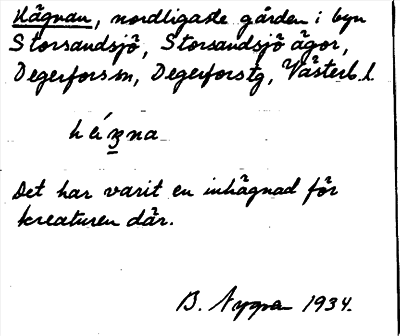 Hägnan, nordligaste gården i byn
Storsandsjö, Storsandsjö ägor,
Degerfors sn, Degerfors tg, Västerb. l.
Det har varit en inhägnad för
kreaturen där.
B. 1934.